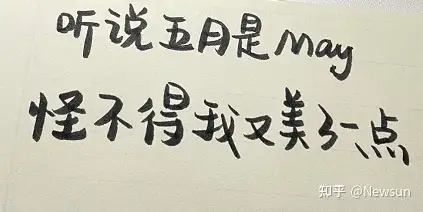 听说五月是May
怪不得我又美了一点
知乎 @Newsun